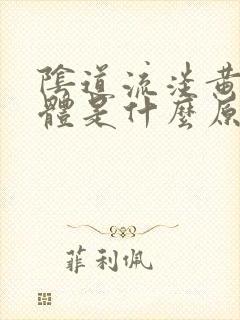 陰道流淡黃
體是什麼原
菲利佩